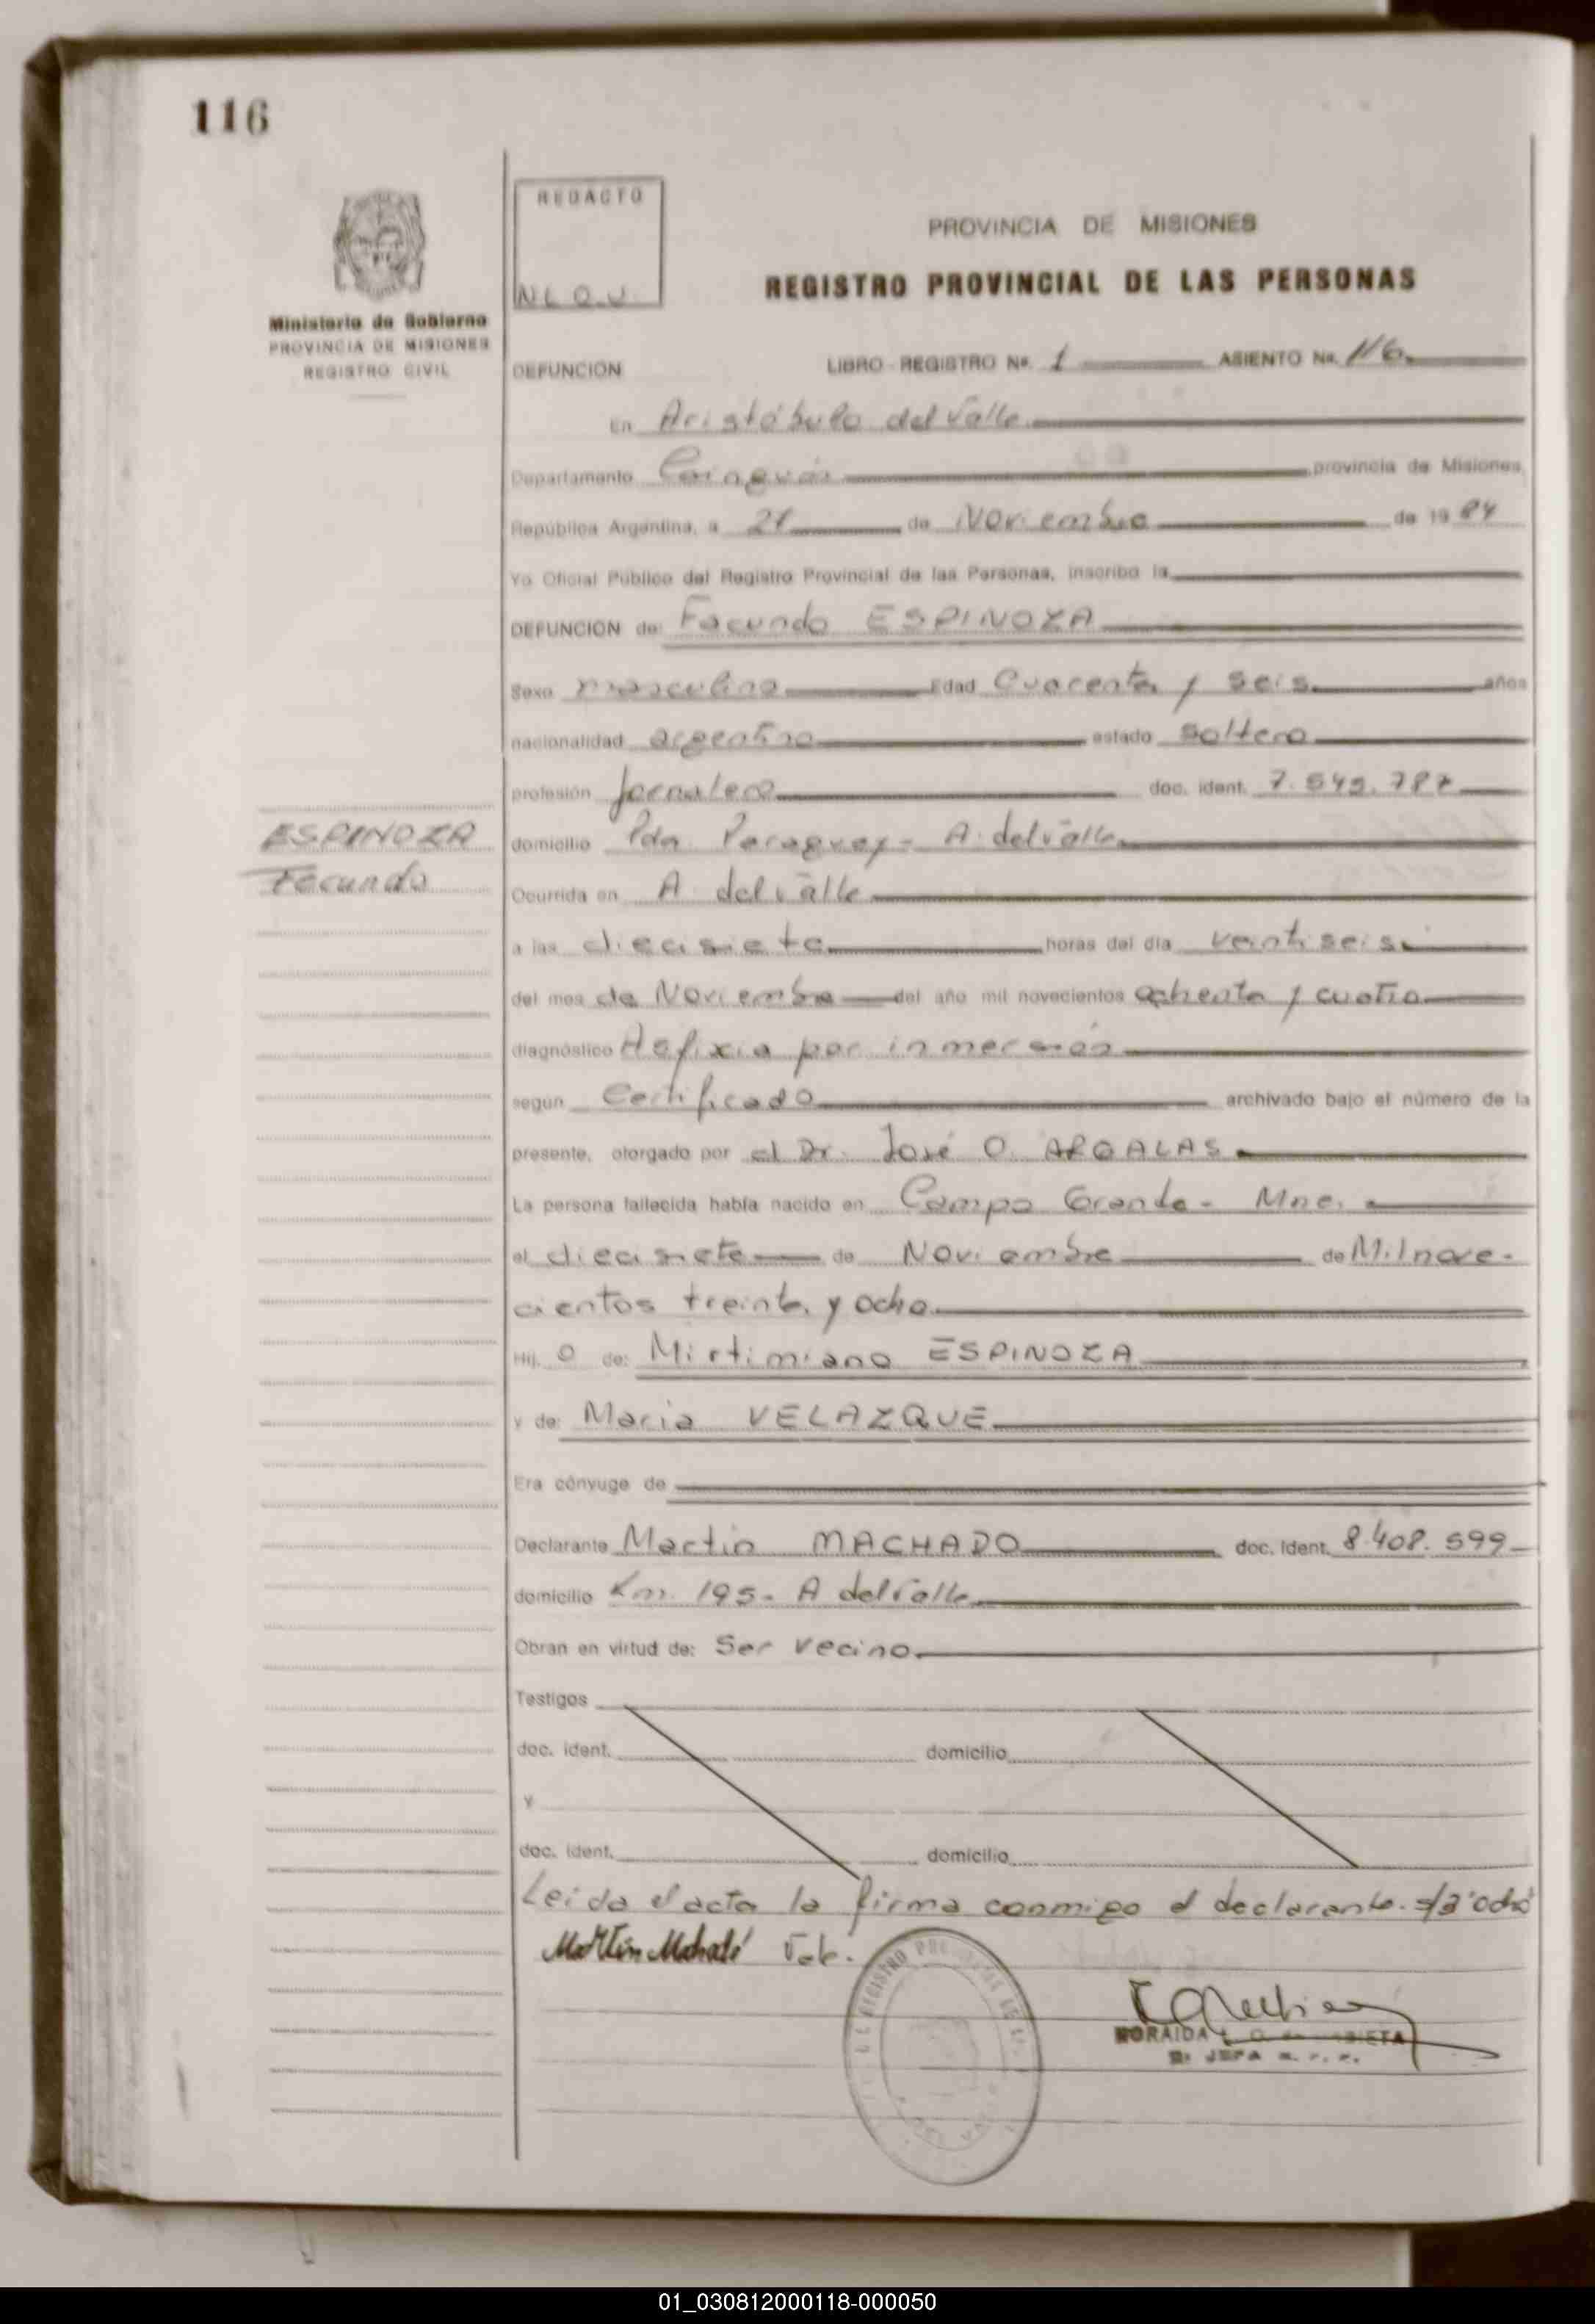 116
REDACTO
N L Q V
Ministerio de Gobierno
PROVINCIA DE MISIONES
REGISTRO CIVIL
PROVINCIA DE MISIONES
REGISTRO PROVINCIAL DE LAS PERSONAS
DEFUNCION LIBRO - REGISTRO Nº. 1 ASIENTO Nº. 116
En Aristóbulo del Valle
Departamento Cainguás provincia de Misiones,
República Argentina, a de Noviembre de 19 84
Yo Oficial Público del Registro Provincial de las Personas, inscribo la
DEFUNCION de: Facundo ESPINOZA
Sexo masculino Edad Cuarenta y seis años
nacionalidad argentino estado soltero
profesión Jornalero doc. ident.
ESPINOZA
Facundo
domicilio Pda. Paraguay - A. del Valle
Ocurrida en A del Valle
a las diecisiete horas del día veintiseis
del mes de Noviembre del año mil novecientos ochenta y cuatro
diagnóstico Asfixia por inmersión
según Certificado archivado bajo el número de la
presente, otorgado por el Dr. José O. ARGALAS
La persona fallecida había nacido en Campo Grande - Mnes.
el diecisiete de Noviembre de Mil nove-
cientos treinta y ocho
Hij. o de: Mirtimiano ESPINOZA
y de: Maria VELAZQUE
Era cónyuge de
Declarante Martin MACHADO doc. ident. 8.408.599
domicilio Km. 195 - A del Valle
Obran en virtud de: Ser vecino
Testigos
doc. ident. domicilio
y
doc. ident. domicilio
Leida el acta la firma conmigo el declarante. s/a: ochó
Vale.